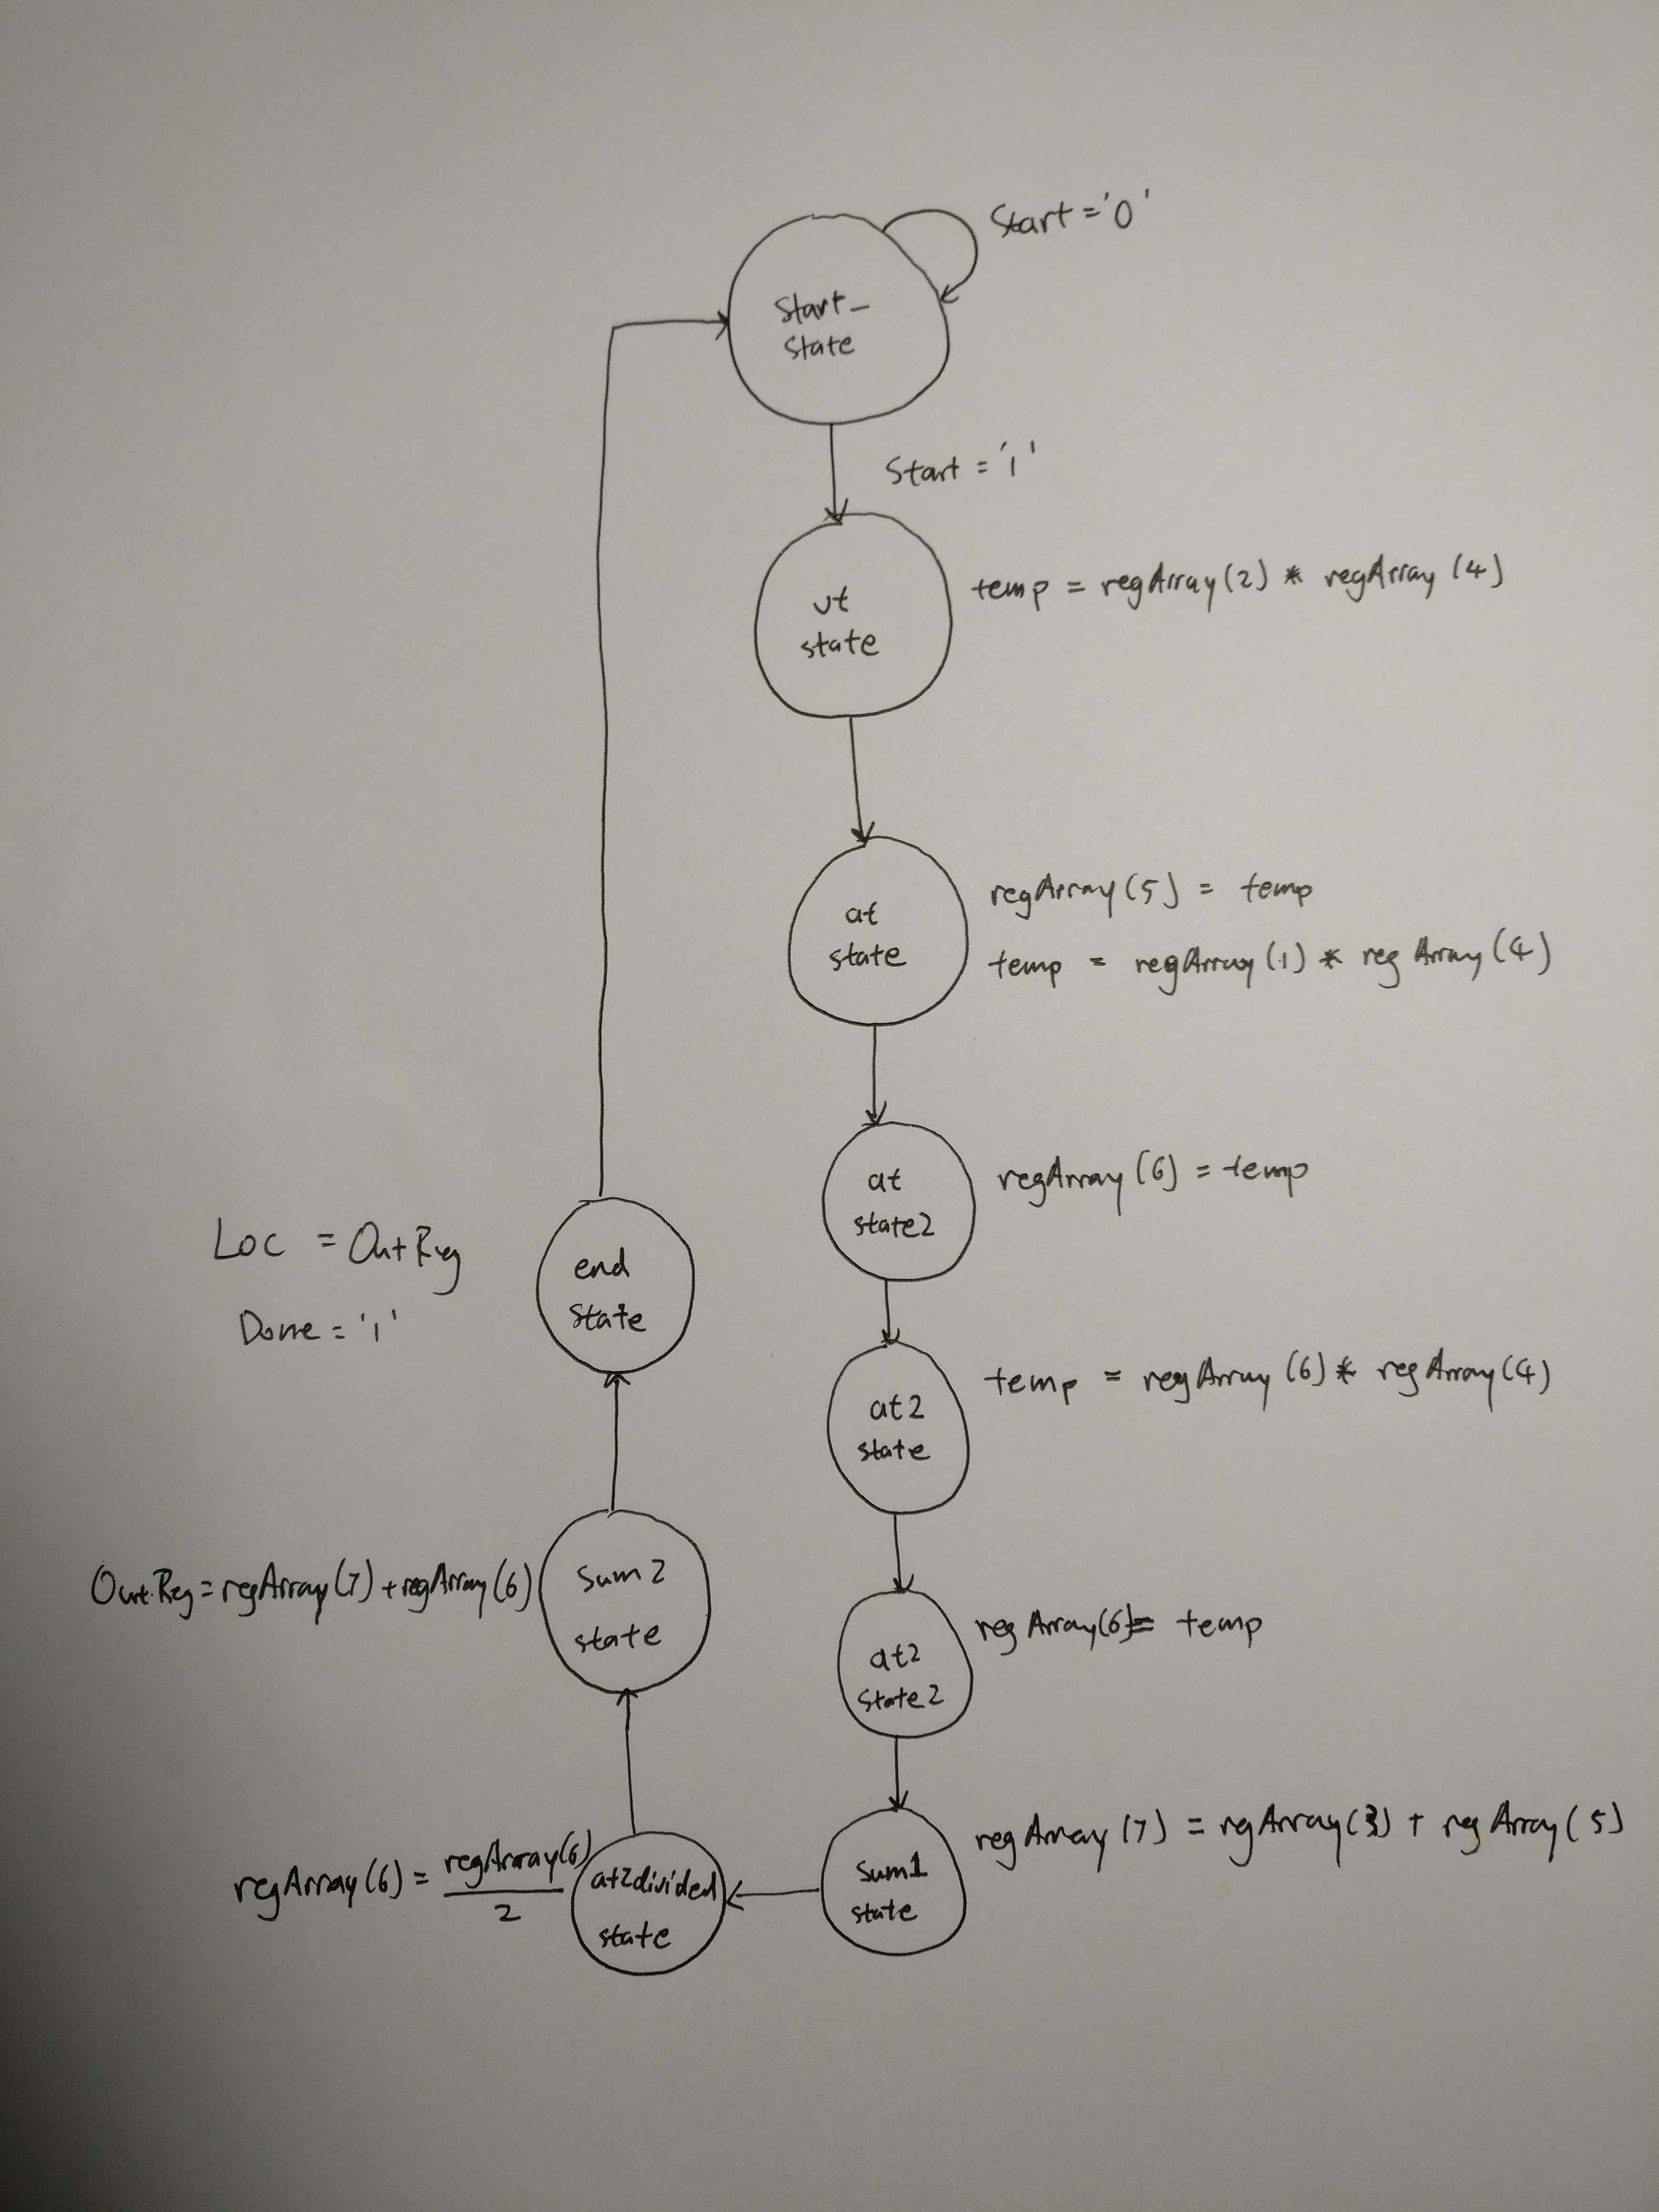 Start = '0'
Start_
state
Start = '1'
vt
state
temp = regArray(2) * regArray(4)
at
state
regArray(5) = temp
temp = regArray(1) * regArray(4)
at
state2
regArray(6) = temp
at2
state
temp = regArray(6) * regArray(4)
at2
state2
regArray(6) = temp
sum1
state
regArray(7) = regArray(3) + regArray(5)
at2divided
state
regArray(6) = regArray(6)
2
sum2
state
OutReg = regArray(7) + regArray(6)
end
state
Loc = OutReg
Done = '1'